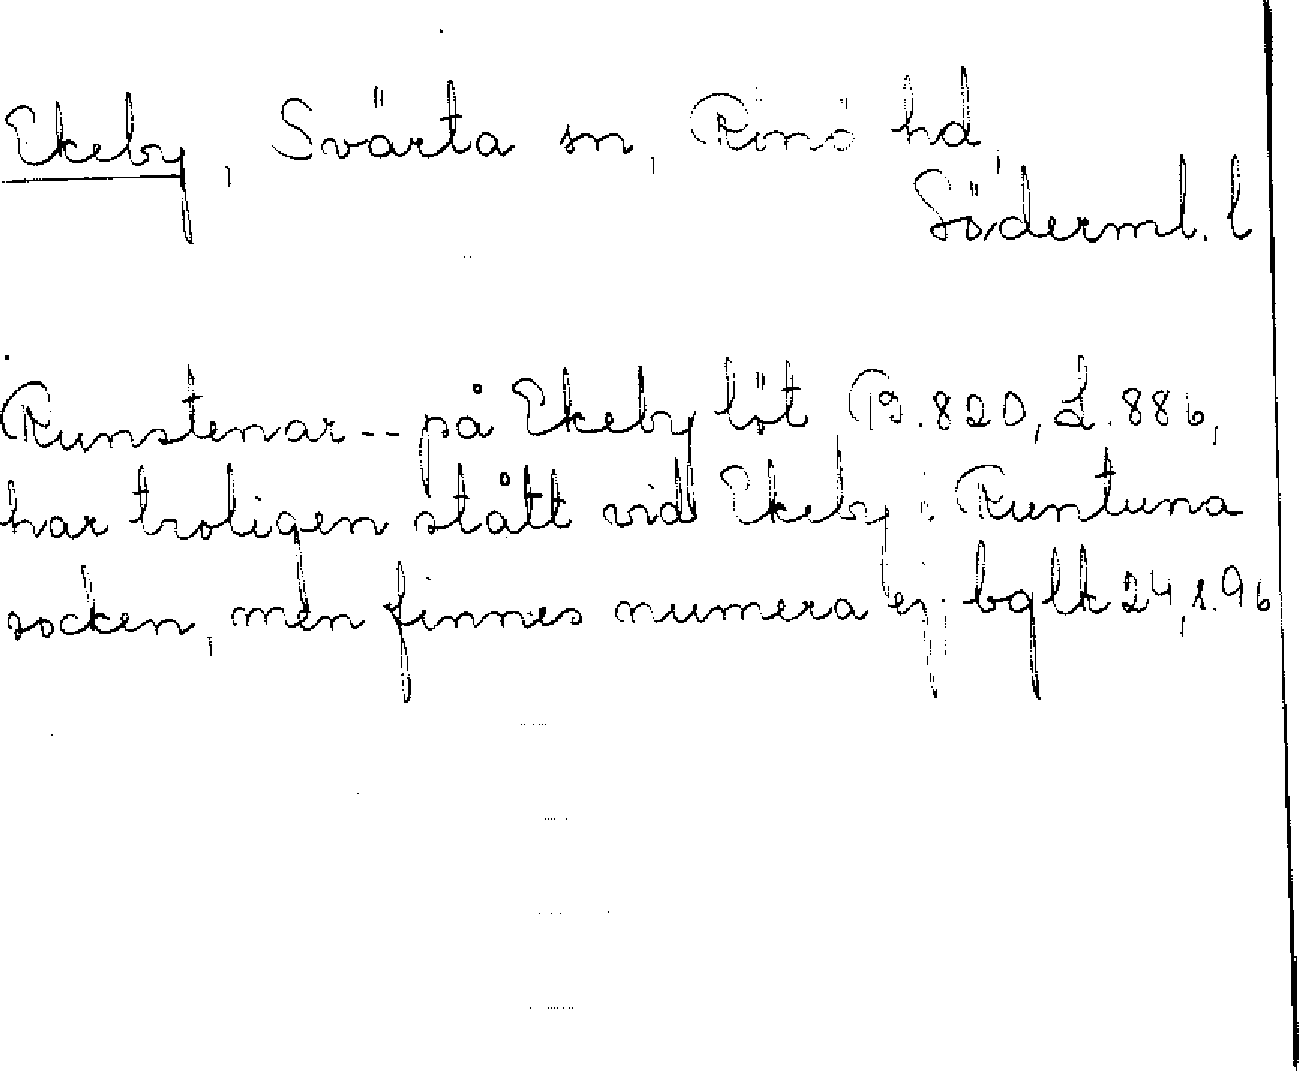 Ekeby, Svärta sn, Rönö hd,
Söderml. l
Runstenar -- på Ekeby löt B. 820, L. 886,
har troligen stått vid Ekeby i Runtuna
socken, men finnes numera ej. bglk 24, s. 96